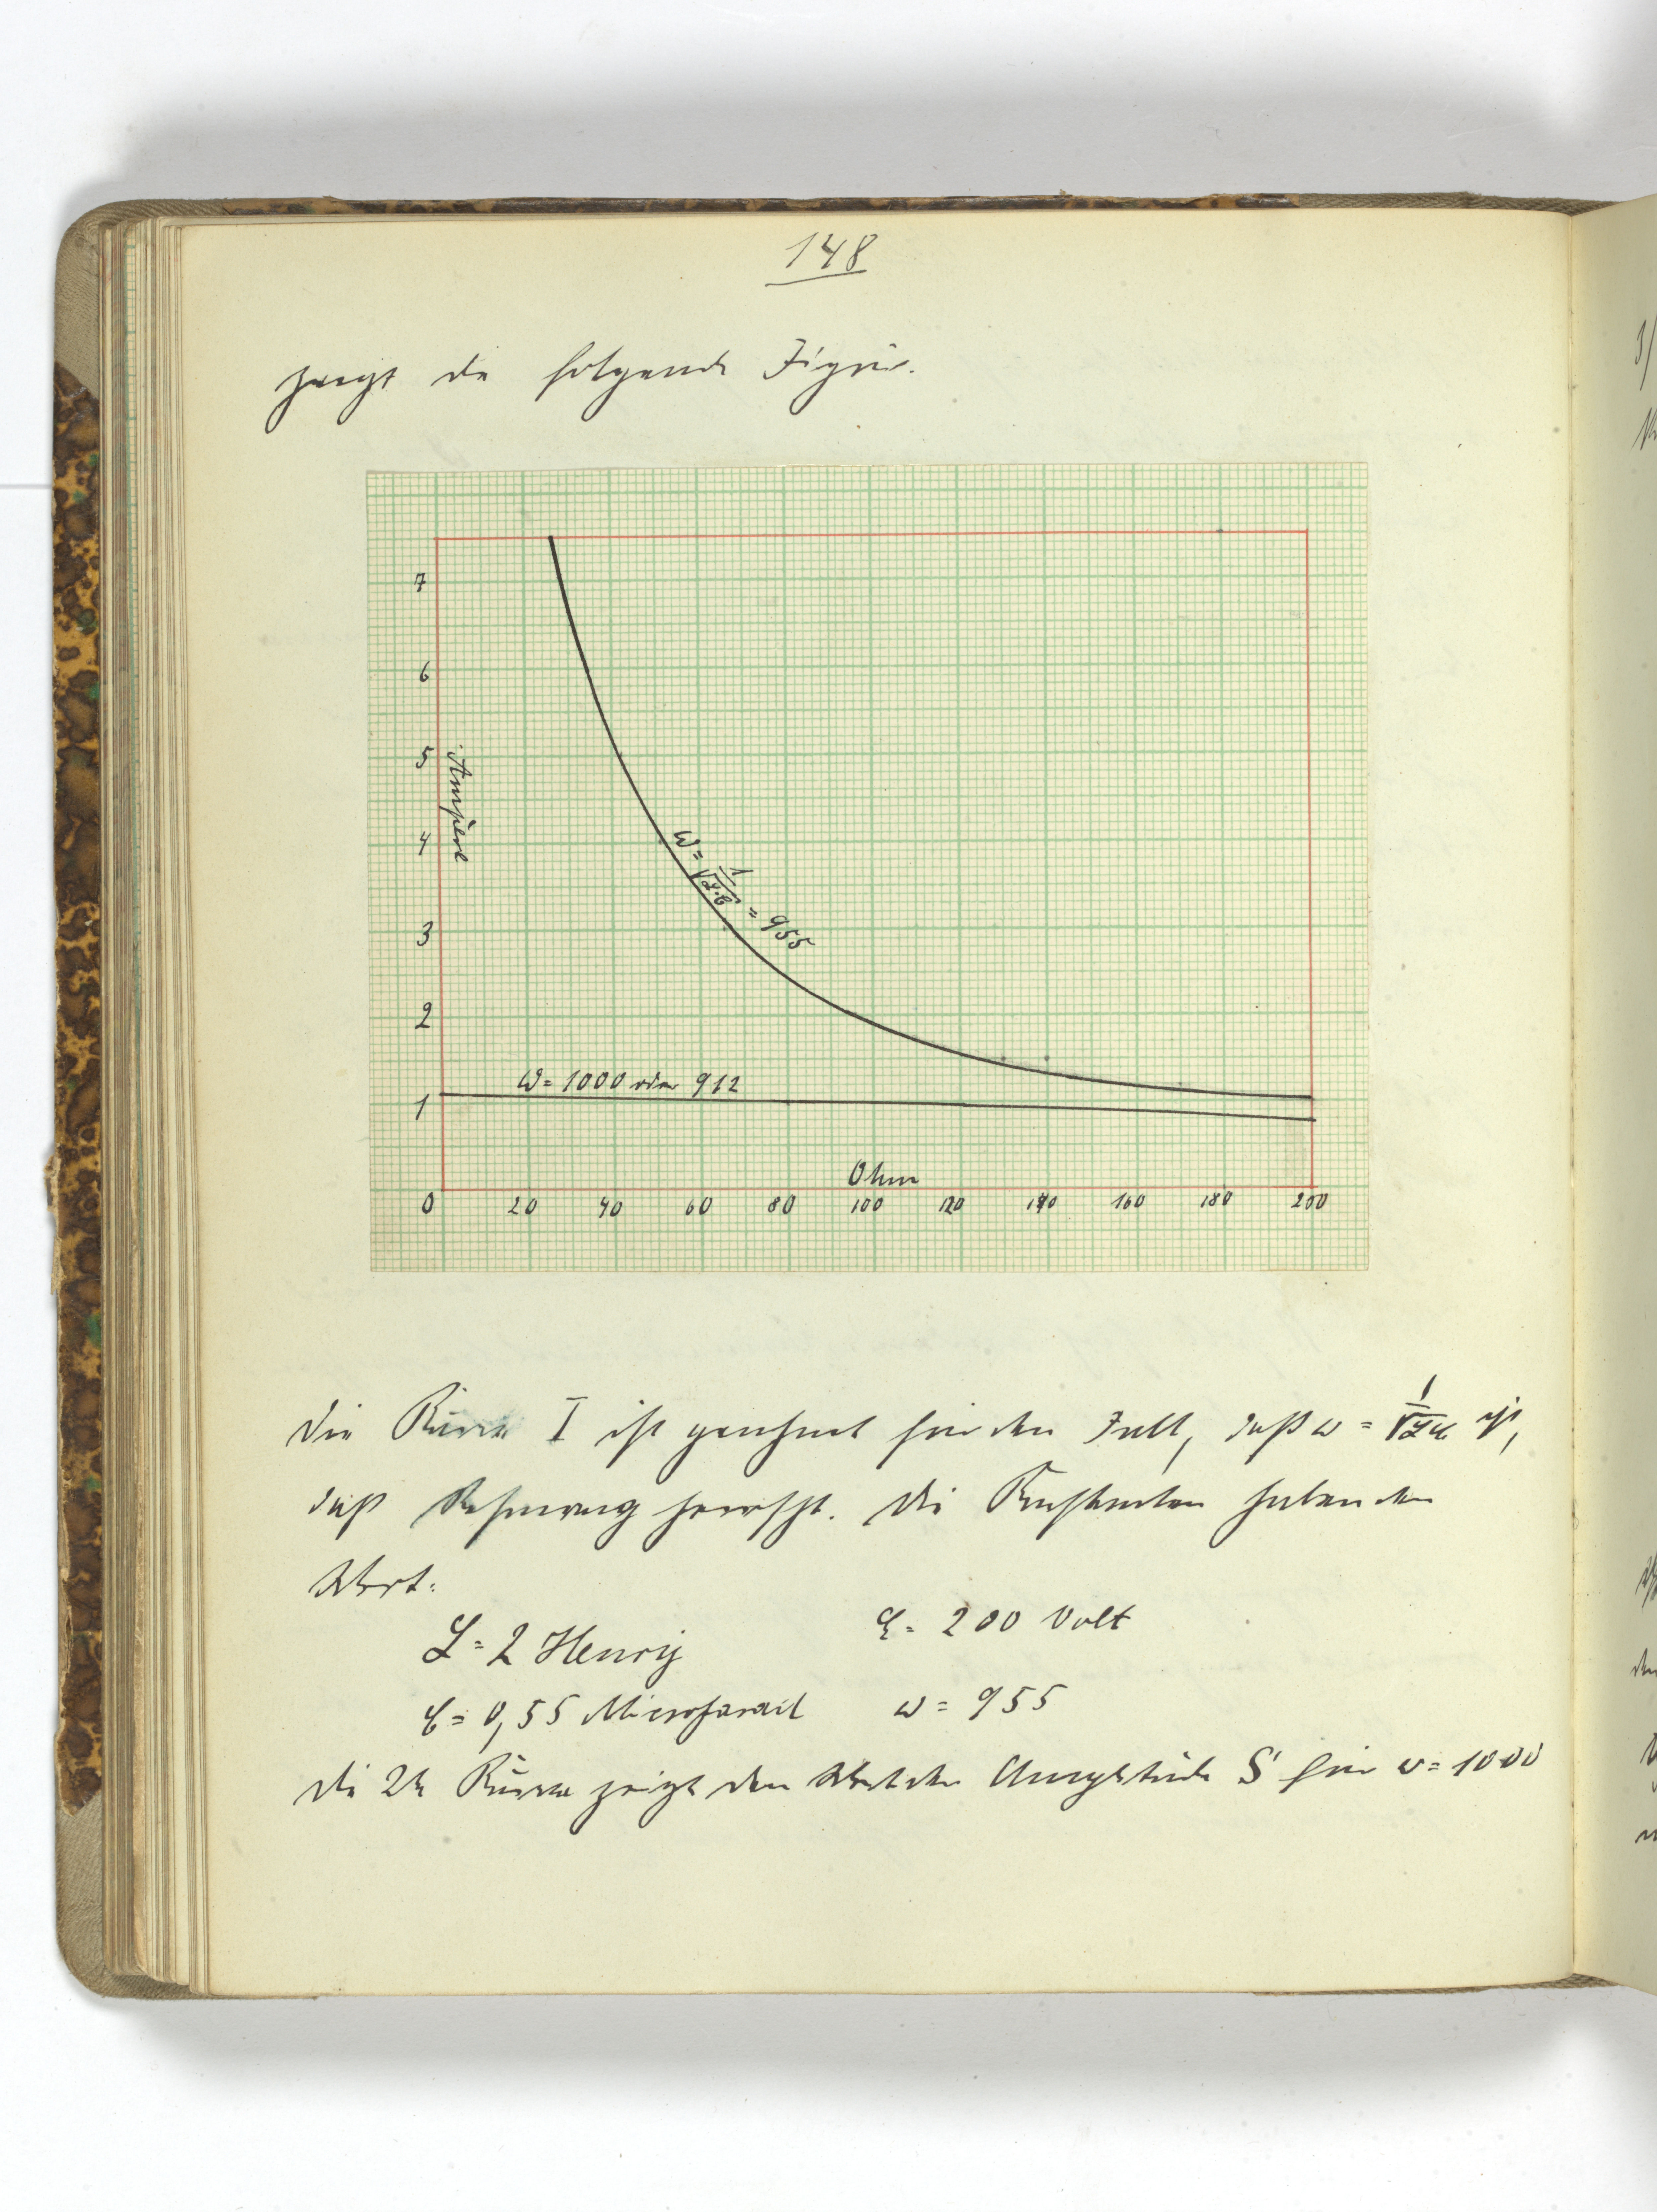 148
zeigt die folgende Figur.
7
6
5
4
3
2
1
0
Ampère
ω = 1/√L·C = 955
ω = 1000 oder 912
Ohm
20 40 60 80 100 120 140 160 180 200
Die Kurve I ist gezeichnet für den Fall, daß ω = 1/√LC ist,
daß Resonanz herrscht. Die Konstanten haben den
Wert:
L = 2 Henry
E = 200 Volt
C = 0,55 Microfarad
ω = 955
Die 2te Kurve zeigt den Wert der Amplitude S für ω = 1000